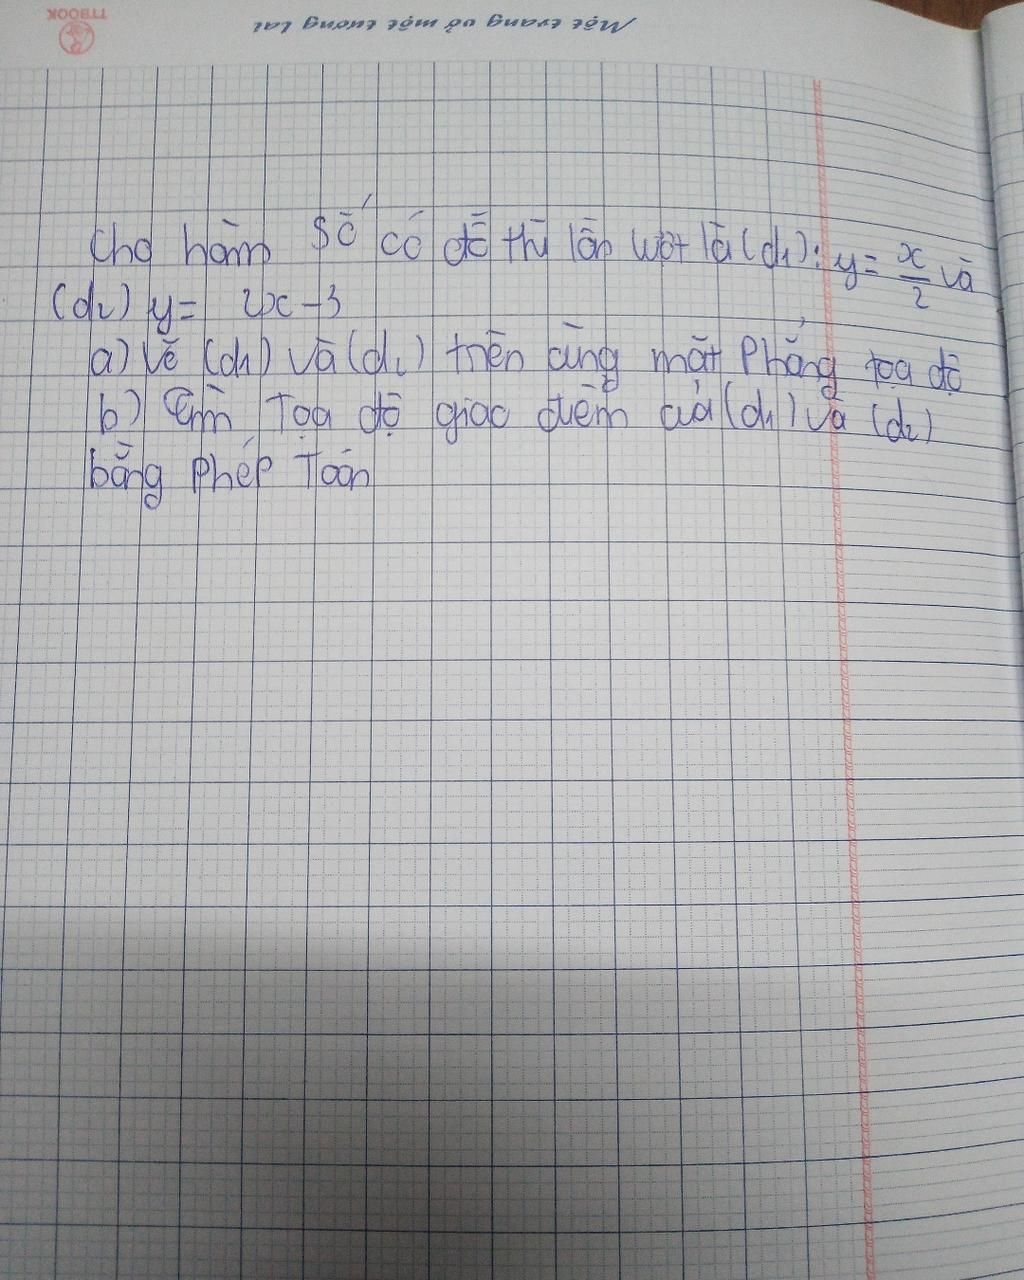 TTBOOK
Một trang vở một tương lai
Cho hàm số có đồ thị lần lượt là (d₁): y = x/2 và
(d₂) y = 2x - 3
a) Vẽ (d₁) và (d₂) trên cùng mặt phẳng tọa độ
b) Tìm tọa độ giao điểm của (d₁) và (d₂)
bằng phép toán